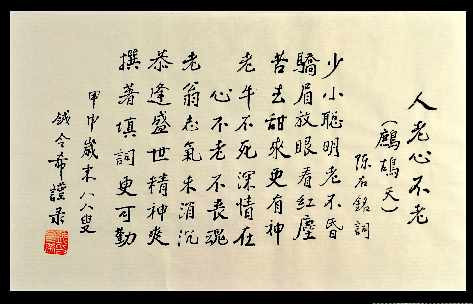 人老心不老
（鷓鴣天）
陈石銘詞
少小聪明老不昏
驕眉放眼看紅塵
苦去甜來更有神
老牛不死深情在
心不老不丧魂
老翁志氣未消沉
恭逢盛世精神爽
撰著填詞更可勤
甲申歲末八八叟
钱令希謹录